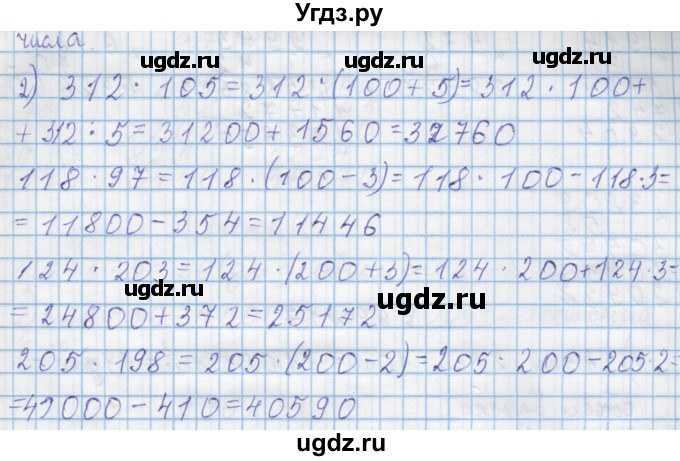 Угдз.ру
числа.
ugdz.ru ugdz.ru
2) 312 · 105 = 312 · (100 + 5) = 312 · 100 +
+ 312 · 5 = 31200 + 1560 = 32760
ugdz.ru ugdz.ru
118 · 97 = 118 · (100 - 3) = 118 · 100 - 118·3 =
= 11800 - 354 = 11446
124 · 203 = 124 · (200 + 3) = 124 · 200 + 124·3 =
ugdz.ru ugdz.ru
= 24800 + 372 = 25172
205 · 198 = 205 · (200 - 2) = 205 · 200 - 205·2 =
= 41000 - 410 = 40590
ugdz.ru